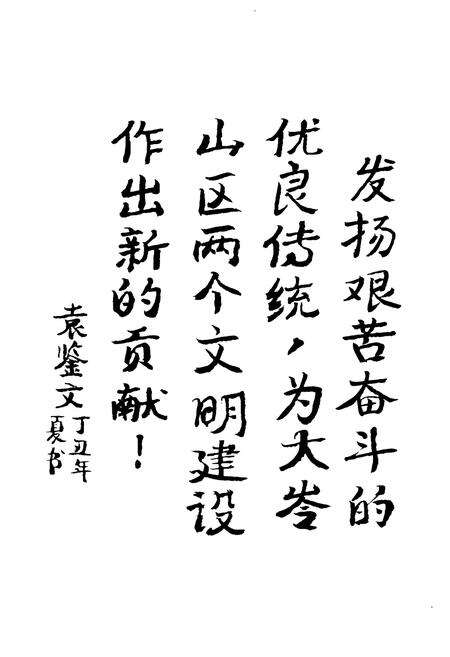 发扬艰苦奋斗的
优良传统，为大岑
山区两个文明建设
作出新的贡献！
袁鉴文丁丑年
夏书